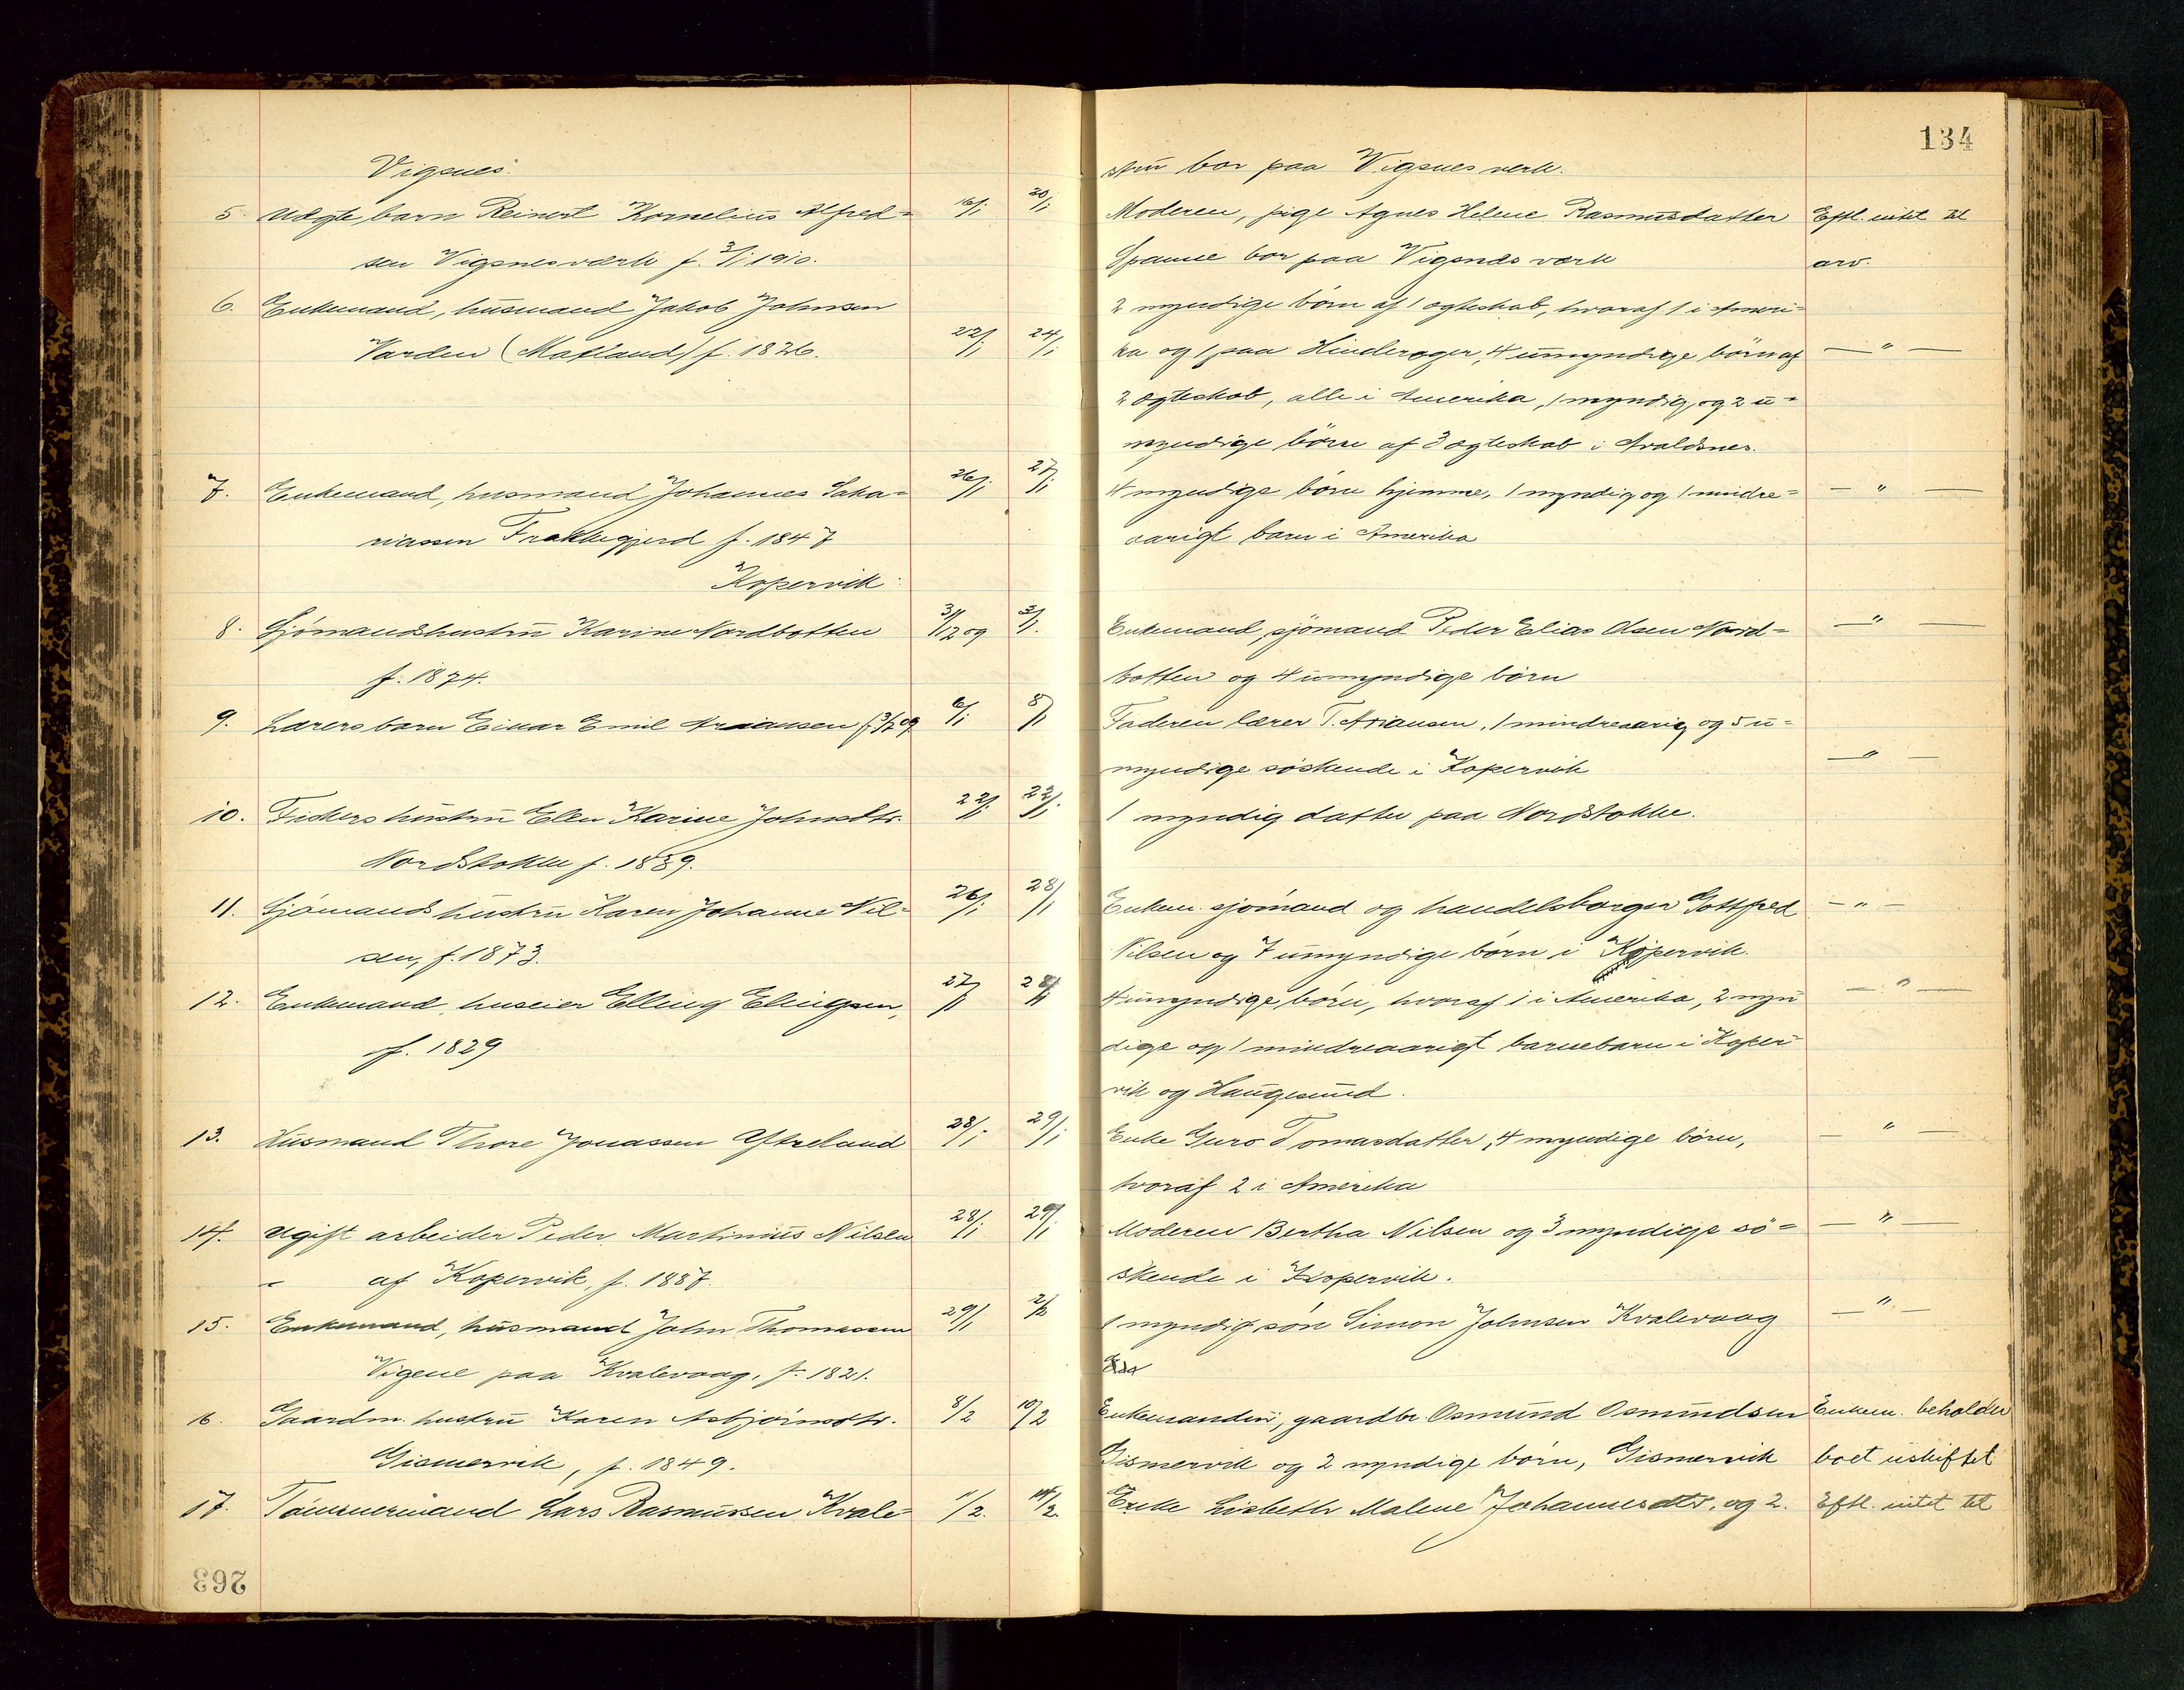 134
Vigsnes.
5. Uægte barn Reinert Kornelius Alfred= 16/1 20/1
sen Vigsnesværk f. 3/1 1910.
6. Enkemand, husmand Jakob Johnsen
Varden (Matland) f. 1826. 22/1 24/1
7. Enkemand, husmand Johannes Saka= 26/1 27/1
riassen Frakkegjerd f. 1847
Kopervik
8. Sjömandshustru Karine Nordbotten 31/12 09 3/1.
f. 1874.
9. Lærers barn Einar Emil Ariansen f. 3/12 09 6/1 8/1
10. Fiskers hustru Ellen Karine Johnsdtr. 22/1 22/1.
Nordstokke f. 1839.
11. Sjömands hustru Karen Johanne Nil= 26/1 28/1
sen, f. 1873.
12. Enkemand, huseier Elling Elingsen, 27/1 28/1
f. 1829
13. Husmand Thore Jonassen Østreland 28/1 29/1
14. Ugift arbeider Peder Martinius Nilsen 28/1 29/1
af Kopervik, f. 1887.
15. Enkemand, husmand John Thomassen 29/1 2/2
Vigene paa Kvalevaag, f. 1821.
16. Gaardm. hustru Karen Asbjörnsdtr. 8/2 10/2
Gismervik, f. 1849.
17. Tömmermand Lars Rasmussen Kvale= 11/2. 14/2.
263
stru bor paa Vigsnes verk.
Moderen, pige Agnes Helene Rasmusdatter Eftl. intet til
Spanne bor paa Vigsnes værk arv.
2 myndige börn af 1 ægteskab, hvoraf 1 i Ameri=
ka og 1 paa Hinderager, 4 umyndige börn af — " —
2 ægteskab, alle i Amerika, 1 myndig og 2 u=
myndige börn af 3 ægteskab i Avaldsnes.
4 myndige börn hjemme, 1 myndig og 1 mindre= — " —
aarigt barn i Amerika
Enkemand, sjömand Peder Elias Olsen Nord= — " —
botten og 4 umyndige börn
Faderen lærer T. Ariansen, 1 mindreaarig og 5 u=
myndige söskende i Kopervik — " —
1 myndig datter paa Nordstokke.
Enkem. sjömand og handelsborger Gottfred — " —
Nilsen og 7 umyndige börn i Kopervik.
4 umyndige börn, hvoraf 1 i Amerika, 2 myn — " —
dige og 1 mindreaarigt barnebarn i Koper
vik og Haugesund.
Enke Guro Tomasdatter, 4 myndige börn, — " —
hvoraf 2 i Amerika
Moderen Bertha Nilsen og 3 myndige sö= — " —
skende i Kopervik.
1 myndig sön Simon Johnsen Kvalevaag — " —
Enkemanden, gaardbr. Osmund Osmundsen Enkem. beholder
Gismervik og 2 myndige börn, Gismervik boet uskiftet
Enke Lisbeth Malene Johannesdtr. og 2. Eftl. intet til